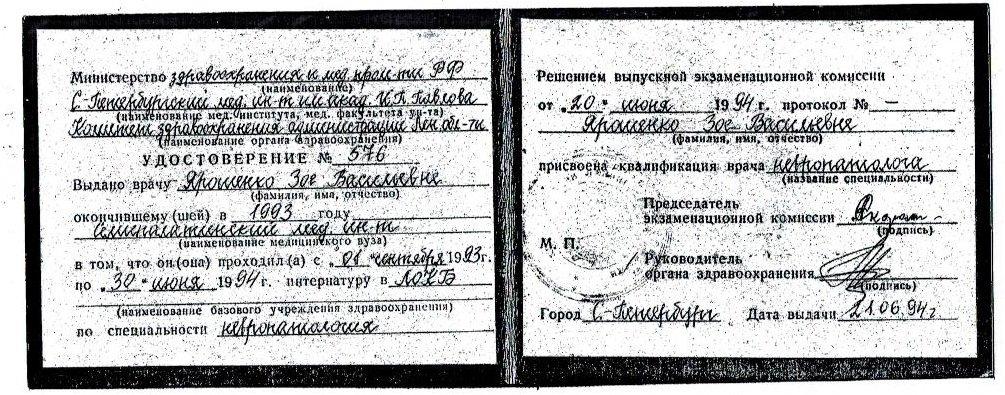 Министерство здравоохранения и мед. пром-ти РФ
(наименование)
С-Петербургский мед. ин-т им. акад. И.П. Павлова
(наименование мед. института, мед. факультета ун-та)
Комитет здравоохранения администрации Лен. обл-ти
(наименование органа здравоохранения)
УДОСТОВЕРЕНИЕ № 576
Выдано врачу Ярошенко Зое Васильевне
(фамилия, имя, отчество)
окончившему (шей) в 1993 году
Семипалатинский мед. ин-т
(наименование медицинского вуза)
в том, что он (она) проходил (а) с „01 " сентября 1993 г.
по „30 " июня 1994 г. интернатуру в ЛОКБ
(наименование базового учреждения здравоохранения)
по специальности невропатология
Решением выпускной экзаменационной комиссии
от „20 " июня 1994 г. протокол № —
Ярошенко Зое Васильевне
(фамилия, имя, отчество)
присвоена квалификация врача невропатолога
(название специальности)
Председатель
экзаменационной комиссии
(подпись)
М. П.
Руководитель
органа здравоохранения
(подпись)
Город С.-Петербург Дата выдачи 21.06.94 г